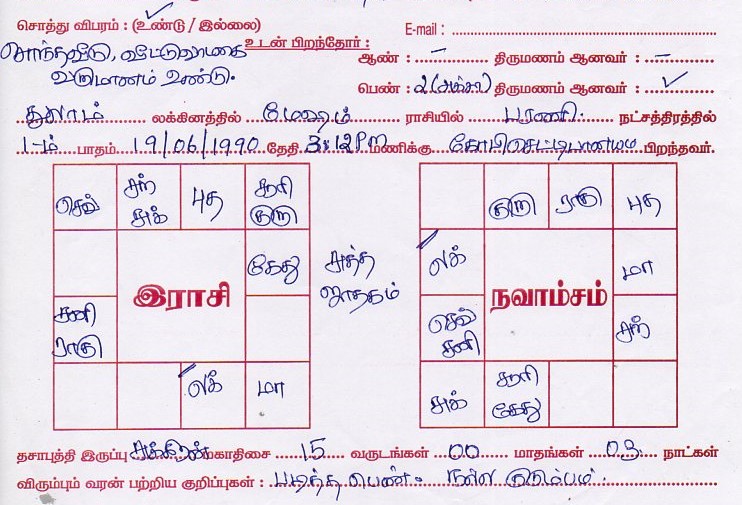 சொத்து விபரம் : (உண்டு / இல்லை) E-mail :
சொந்தவீடு, வீட்டுவாடகை உடன் பிறந்தோர் : ஆண் : – திருமணம் ஆனவர் : –
வருமானம் உண்டு. பெண் : 2 (அக்கா) திருமணம் ஆனவர் : ✓
துலாம் லக்கினத்தில் மேஷம் ராசியில் பரணி நட்சத்திரத்தில்
1-ம் பாதம் 19/06/1990 தேதி 3:12 PM மணிக்கு கோபிசெட்டிபாளையம் பிறந்தவர்.
செவ் சந் சுக் புத சூரி குரு
குரு ராகு புத
கேது
லக் மா
இராசி
சுத்த ஜாதகம்
நவாம்சம்
சனி ராகு
செவ் சனி சந்
லக் மா
சுக் சூரி கேது
தசாபுத்தி இருப்பு சுக்கிரன் காதிசை 15 வருடங்கள் 00 மாதங்கள் 03 நாட்கள்
விரும்பும் வரன் பற்றிய குறிப்புகள் : படித்த பெண். நல்ல குடும்பம்.